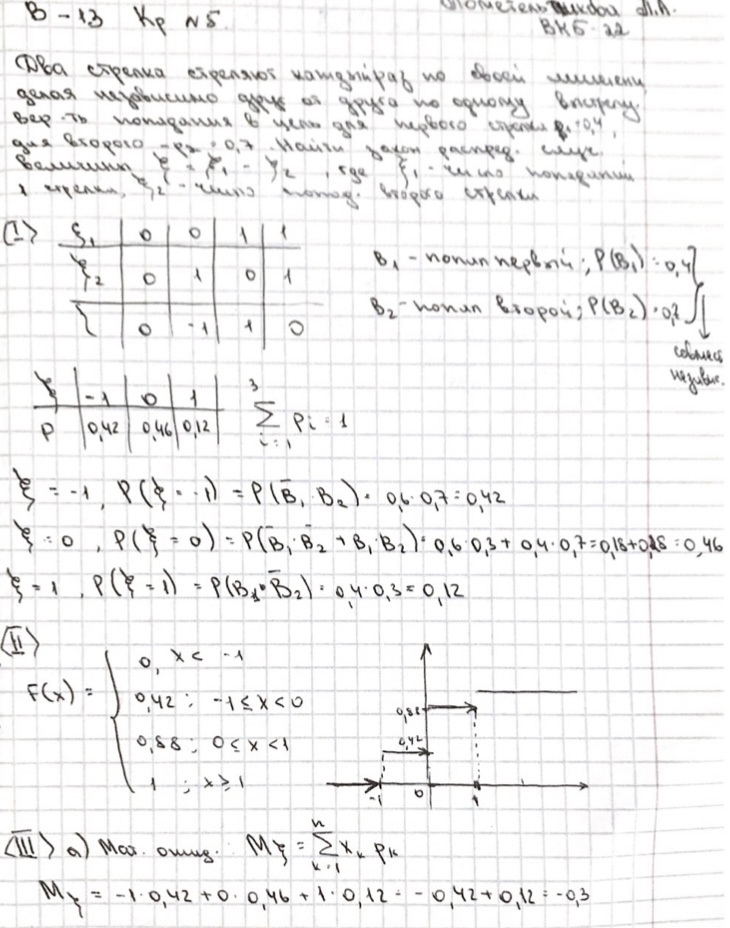 В - 13 Кр №5.
Л.А.
ВКБ-22
Два стрелка стреляют каждый раз по своей мишени,
делая независимо друг от друга по одному выстрелу.
вер-ть попадания в цель для первого стрелка p₁=0,4,
для второго - p₂=0,7. Найти закон распред. случ.
величины ξ = ξ₁ - ξ₂, где ξ₁ - число попаданий
1 стрелка, ξ₂ - число попад. второго стрелка
<I> ξ₁ | 0 | 0 | 1 | 1
ξ₂ | 0 | 1 | 0 | 1
ξ | 0 | -1 | 1 | 0
B₁ - попал первый; P(B₁) = 0,4
B₂ - попал второй; P(B₂) = 0,7
совмест
независ.
ξ | -1 | 0 | 1
P | 0,42 | 0,46 | 0,12
3 ∑ i=1 Pi = 1
ξ = -1, P(ξ = -1) = P(B̄₁·B₂) = 0,6·0,7=0,42
ξ = 0, P(ξ = 0) = P(B̄₁·B̄₂ + B₁·B₂) = 0,6·0,3 + 0,4·0,7=0,18+0,28=0,46
ξ = 1, P(ξ = 1) = P(B₁·B̄₂) = 0,4·0,3=0,12
<II>
F(x) = {
0, x < -1
0,42; -1≤x<0
0,88; 0≤x<1
1; x≥1
0,88
0,42
-1 0 1
<III> а) Мат. ожид. Mξ = n ∑ k=1 xₖ pₖ
Mξ = -1·0,42 + 0·0,46 + 1·0,12 = -0,42+0,12 = -0,3